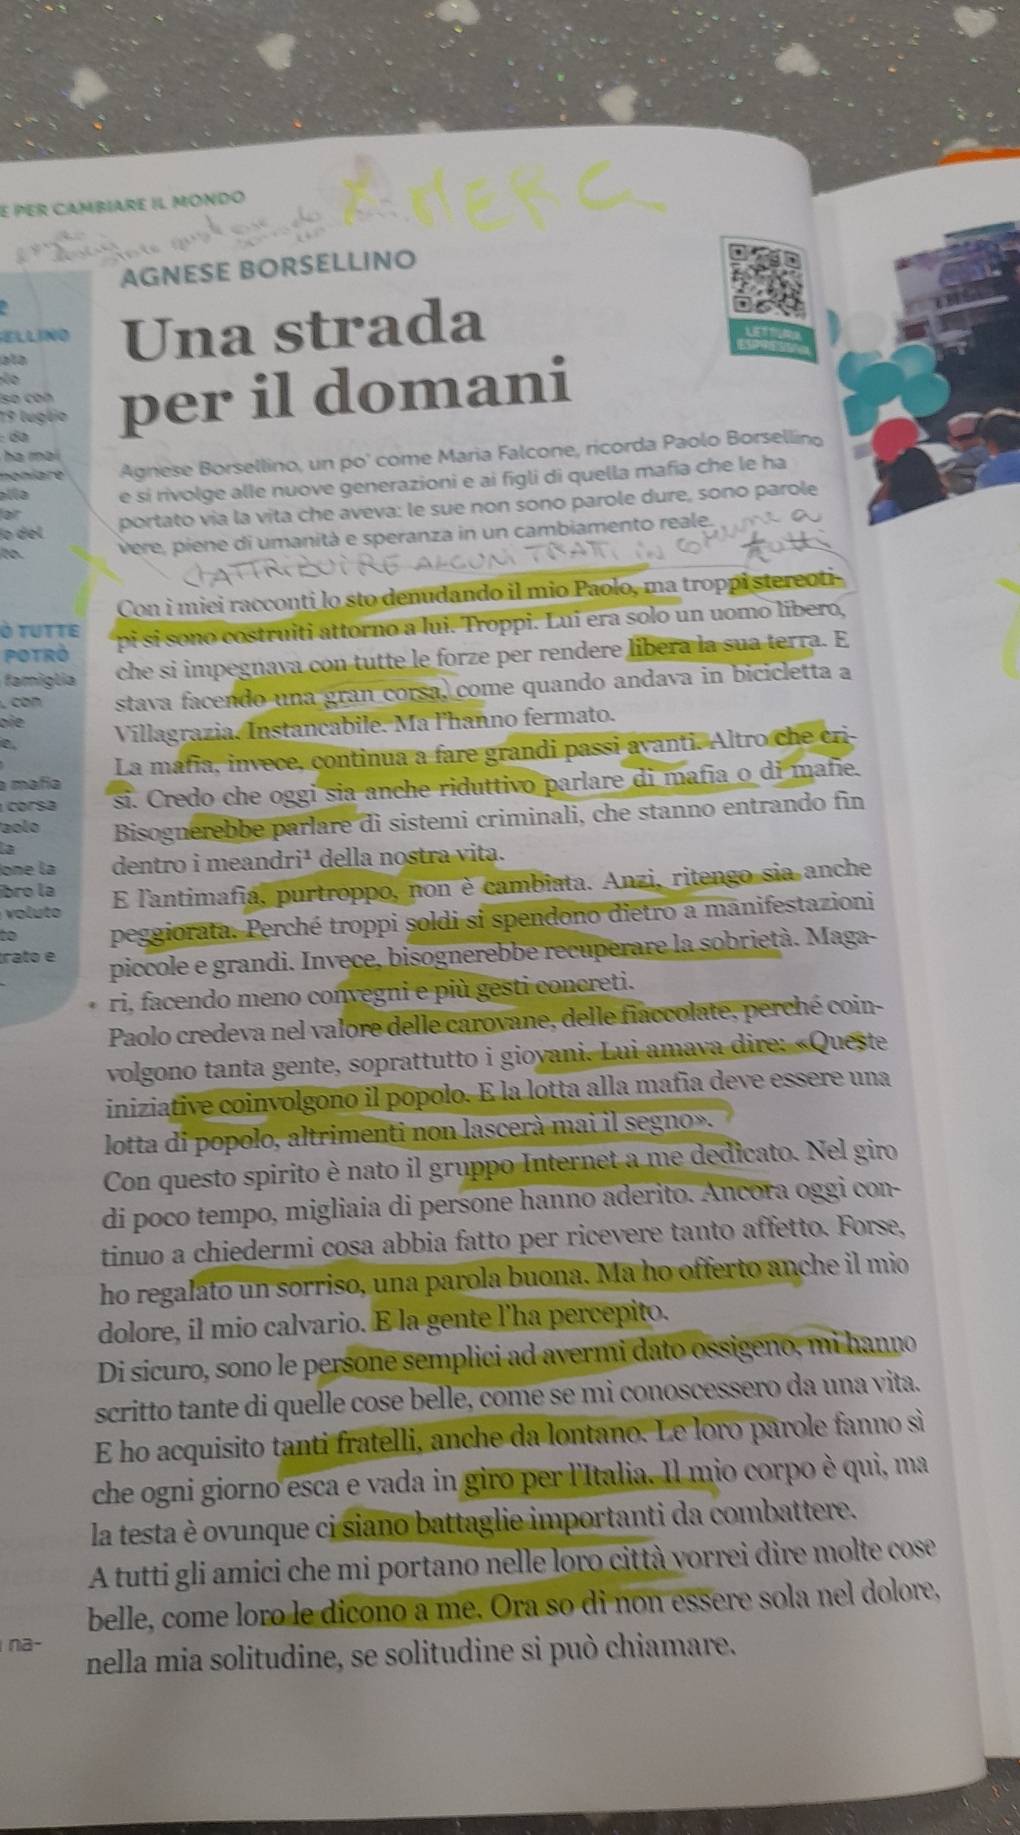 E PER CAMBIARE IL MONDO
X MERC
AGNESE BORSELLINO
Una strada
per il domani
LETTURA
ESPRESSIVA
Agnese Borsellino, un po' come Maria Falcone, ricorda Paolo Borsellino
e si rivolge alle nuove generazioni e ai figli di quella mafia che le ha
portato via la vita che aveva: le sue non sono parole dure, sono parole
vere, piene di umanità e speranza in un cambiamento reale.
ATTRIBUIRE ALCUNI TRATTI in comune a
tutti
Con i miei racconti lo sto denudando il mio Paolo, ma troppi stereoti-
pi si sono costruiti attorno a lui. Troppi. Lui era solo un uomo libero,
che si impegnava con tutte le forze per rendere libera la sua terra. E
stava facendo una gran corsa, come quando andava in bicicletta a
Villagrazia. Instancabile. Ma l'hanno fermato.
La mafia, invece, continua a fare grandi passi avanti. Altro che cri-
si. Credo che oggi sia anche riduttivo parlare di mafia o di mafie.
Bisognerebbe parlare di sistemi criminali, che stanno entrando fin
dentro i meandri¹ della nostra vita.
E l'antimafia, purtroppo, non è cambiata. Anzi, ritengo sia anche
peggiorata. Perché troppi soldi si spendono dietro a manifestazioni
piccole e grandi. Invece, bisognerebbe recuperare la sobrietà. Maga-
ri, facendo meno convegni e più gesti concreti.
Paolo credeva nel valore delle carovane, delle fiaccolate, perché coin-
volgono tanta gente, soprattutto i giovani. Lui amava dire: «Queste
iniziative coinvolgono il popolo. E la lotta alla mafia deve essere una
lotta di popolo, altrimenti non lascerà mai il segno».
Con questo spirito è nato il gruppo Internet a me dedicato. Nel giro
di poco tempo, migliaia di persone hanno aderito. Ancora oggi con-
tinuo a chiedermi cosa abbia fatto per ricevere tanto affetto. Forse,
ho regalato un sorriso, una parola buona. Ma ho offerto anche il mio
dolore, il mio calvario. E la gente l'ha percepito.
Di sicuro, sono le persone semplici ad avermi dato ossigeno, mi hanno
scritto tante di quelle cose belle, come se mi conoscessero da una vita.
E ho acquisito tanti fratelli, anche da lontano. Le loro parole fanno sì
che ogni giorno esca e vada in giro per l'Italia. Il mio corpo è qui, ma
la testa è ovunque ci siano battaglie importanti da combattere.
A tutti gli amici che mi portano nelle loro città vorrei dire molte cose
belle, come loro le dicono a me. Ora so di non essere sola nel dolore,
nella mia solitudine, se solitudine si può chiamare.
ELLINO
so con
19 luglio
ha mai
moniare
alla
lo del
Ò TUTTE
POTRÒ
famiglia
, con
a mafia
corsa
aolo
la
ione la
ibro la
voluto
to
trato e
na-